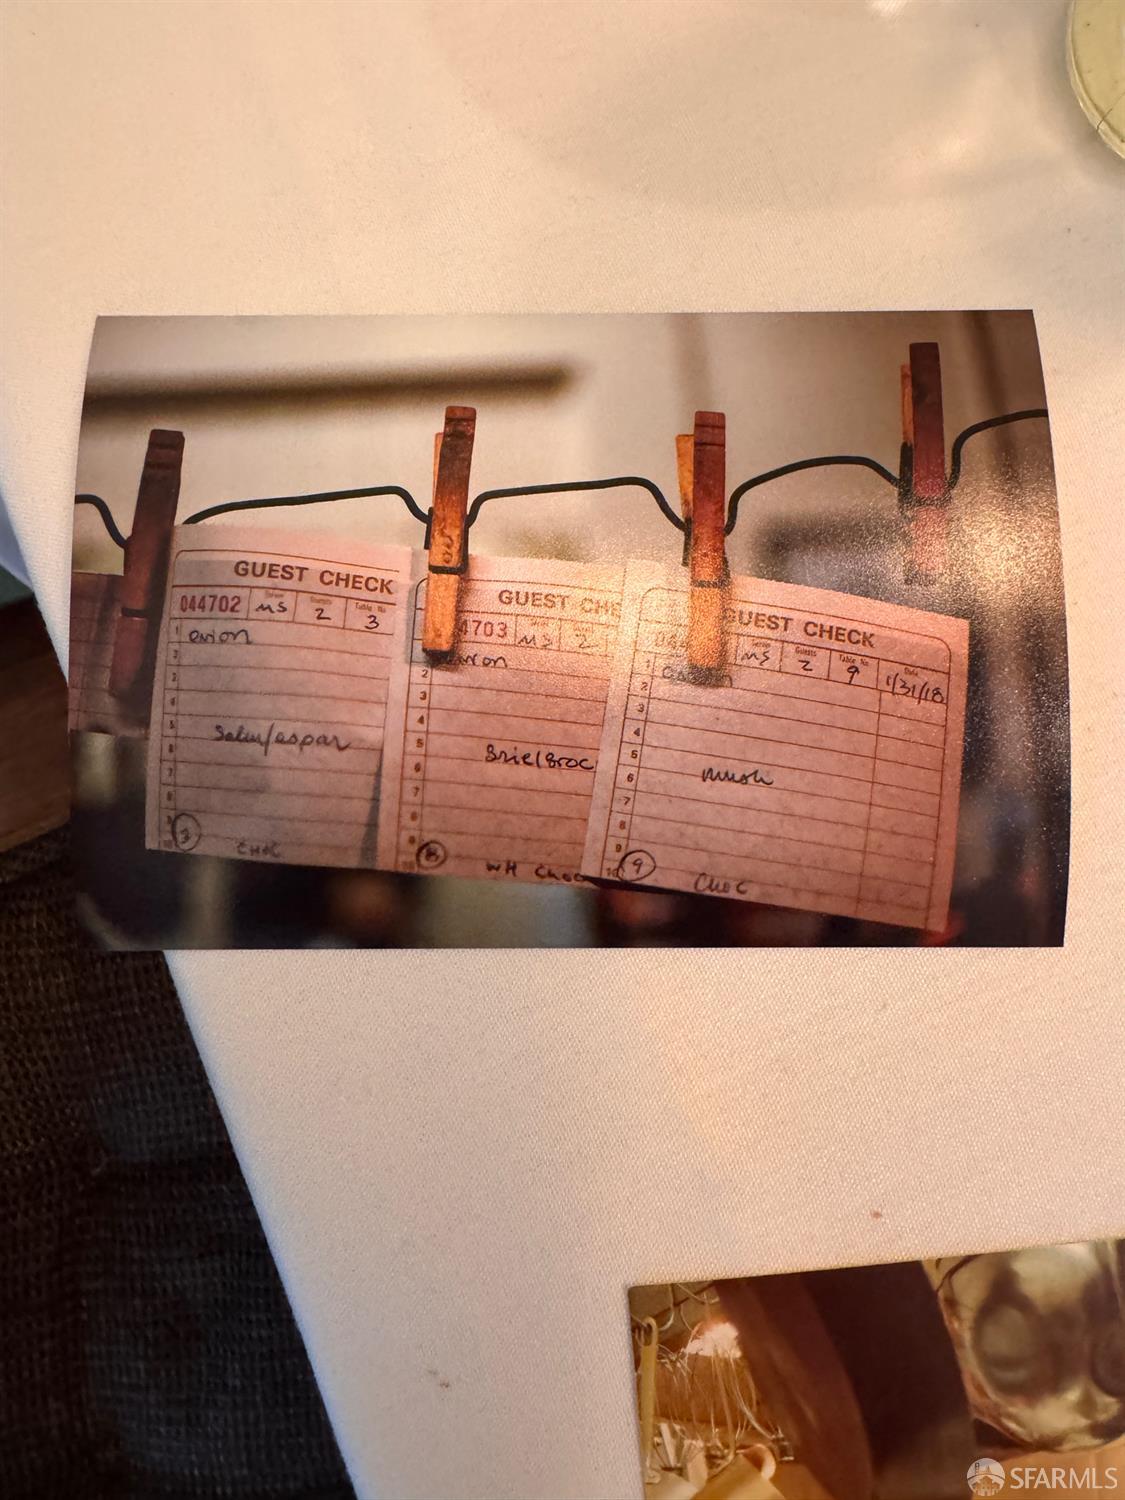 GUEST CHECK
044702 Server MS Guests 2 Table No. 3
1 onion
2
3
4
5 Salm/aspar
6
7
8
9
10 CHOC
3
GUEST CHE
4703 MS 2
onion
2
3
4
5 Brie/Broc
6
7
8
9
10 WH CHOC
8
GUEST CHECK
044 Server MS Guests 2 Table No. 9 Date 1/31/18
1
2
3
4
5
6 mush
7
8
9
10 CHOC
9
SFARMLS